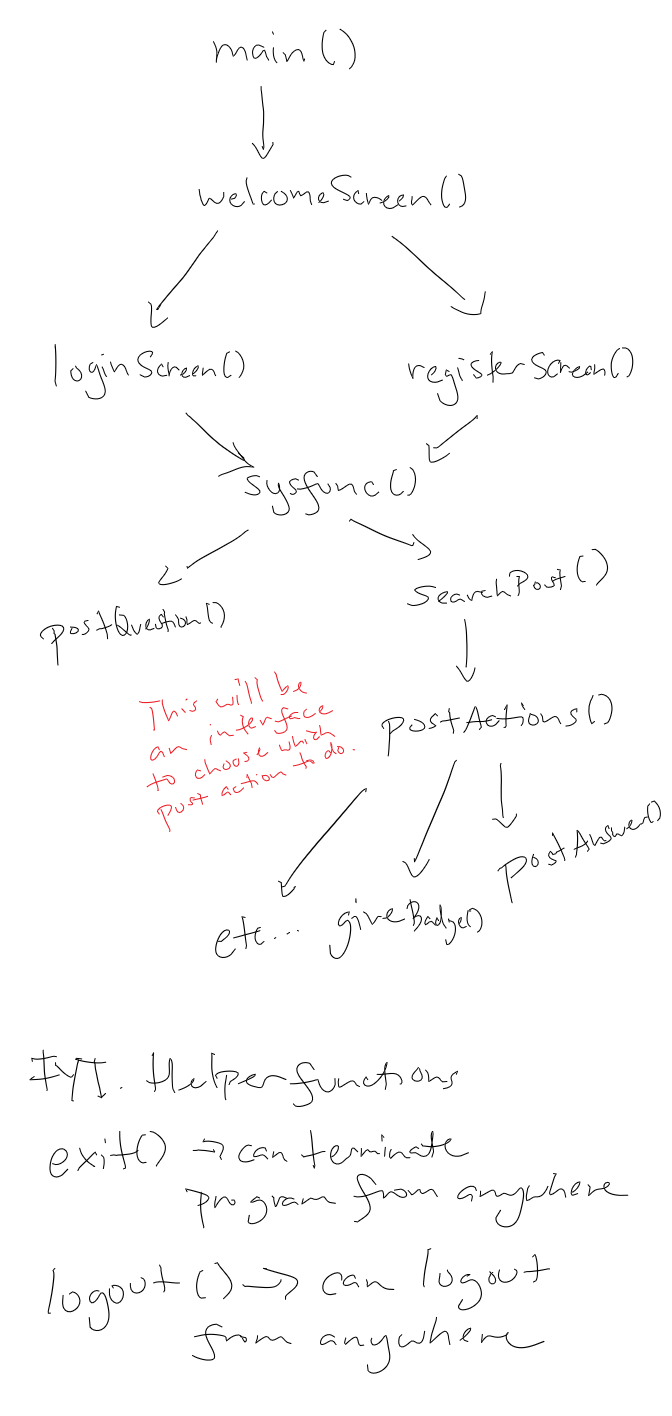 main()
welcomeScreen()
loginScreen()
registerScreen()
sysfunc()
postQuestion()
searchPost()
This will be
an interface
to choose which
post action to do.
postActions()
etc...
giveBadge()
postAnswer()
FYI. Helper functions
exit() → can terminate
program from anywhere
logout() → can logout
from anywhere